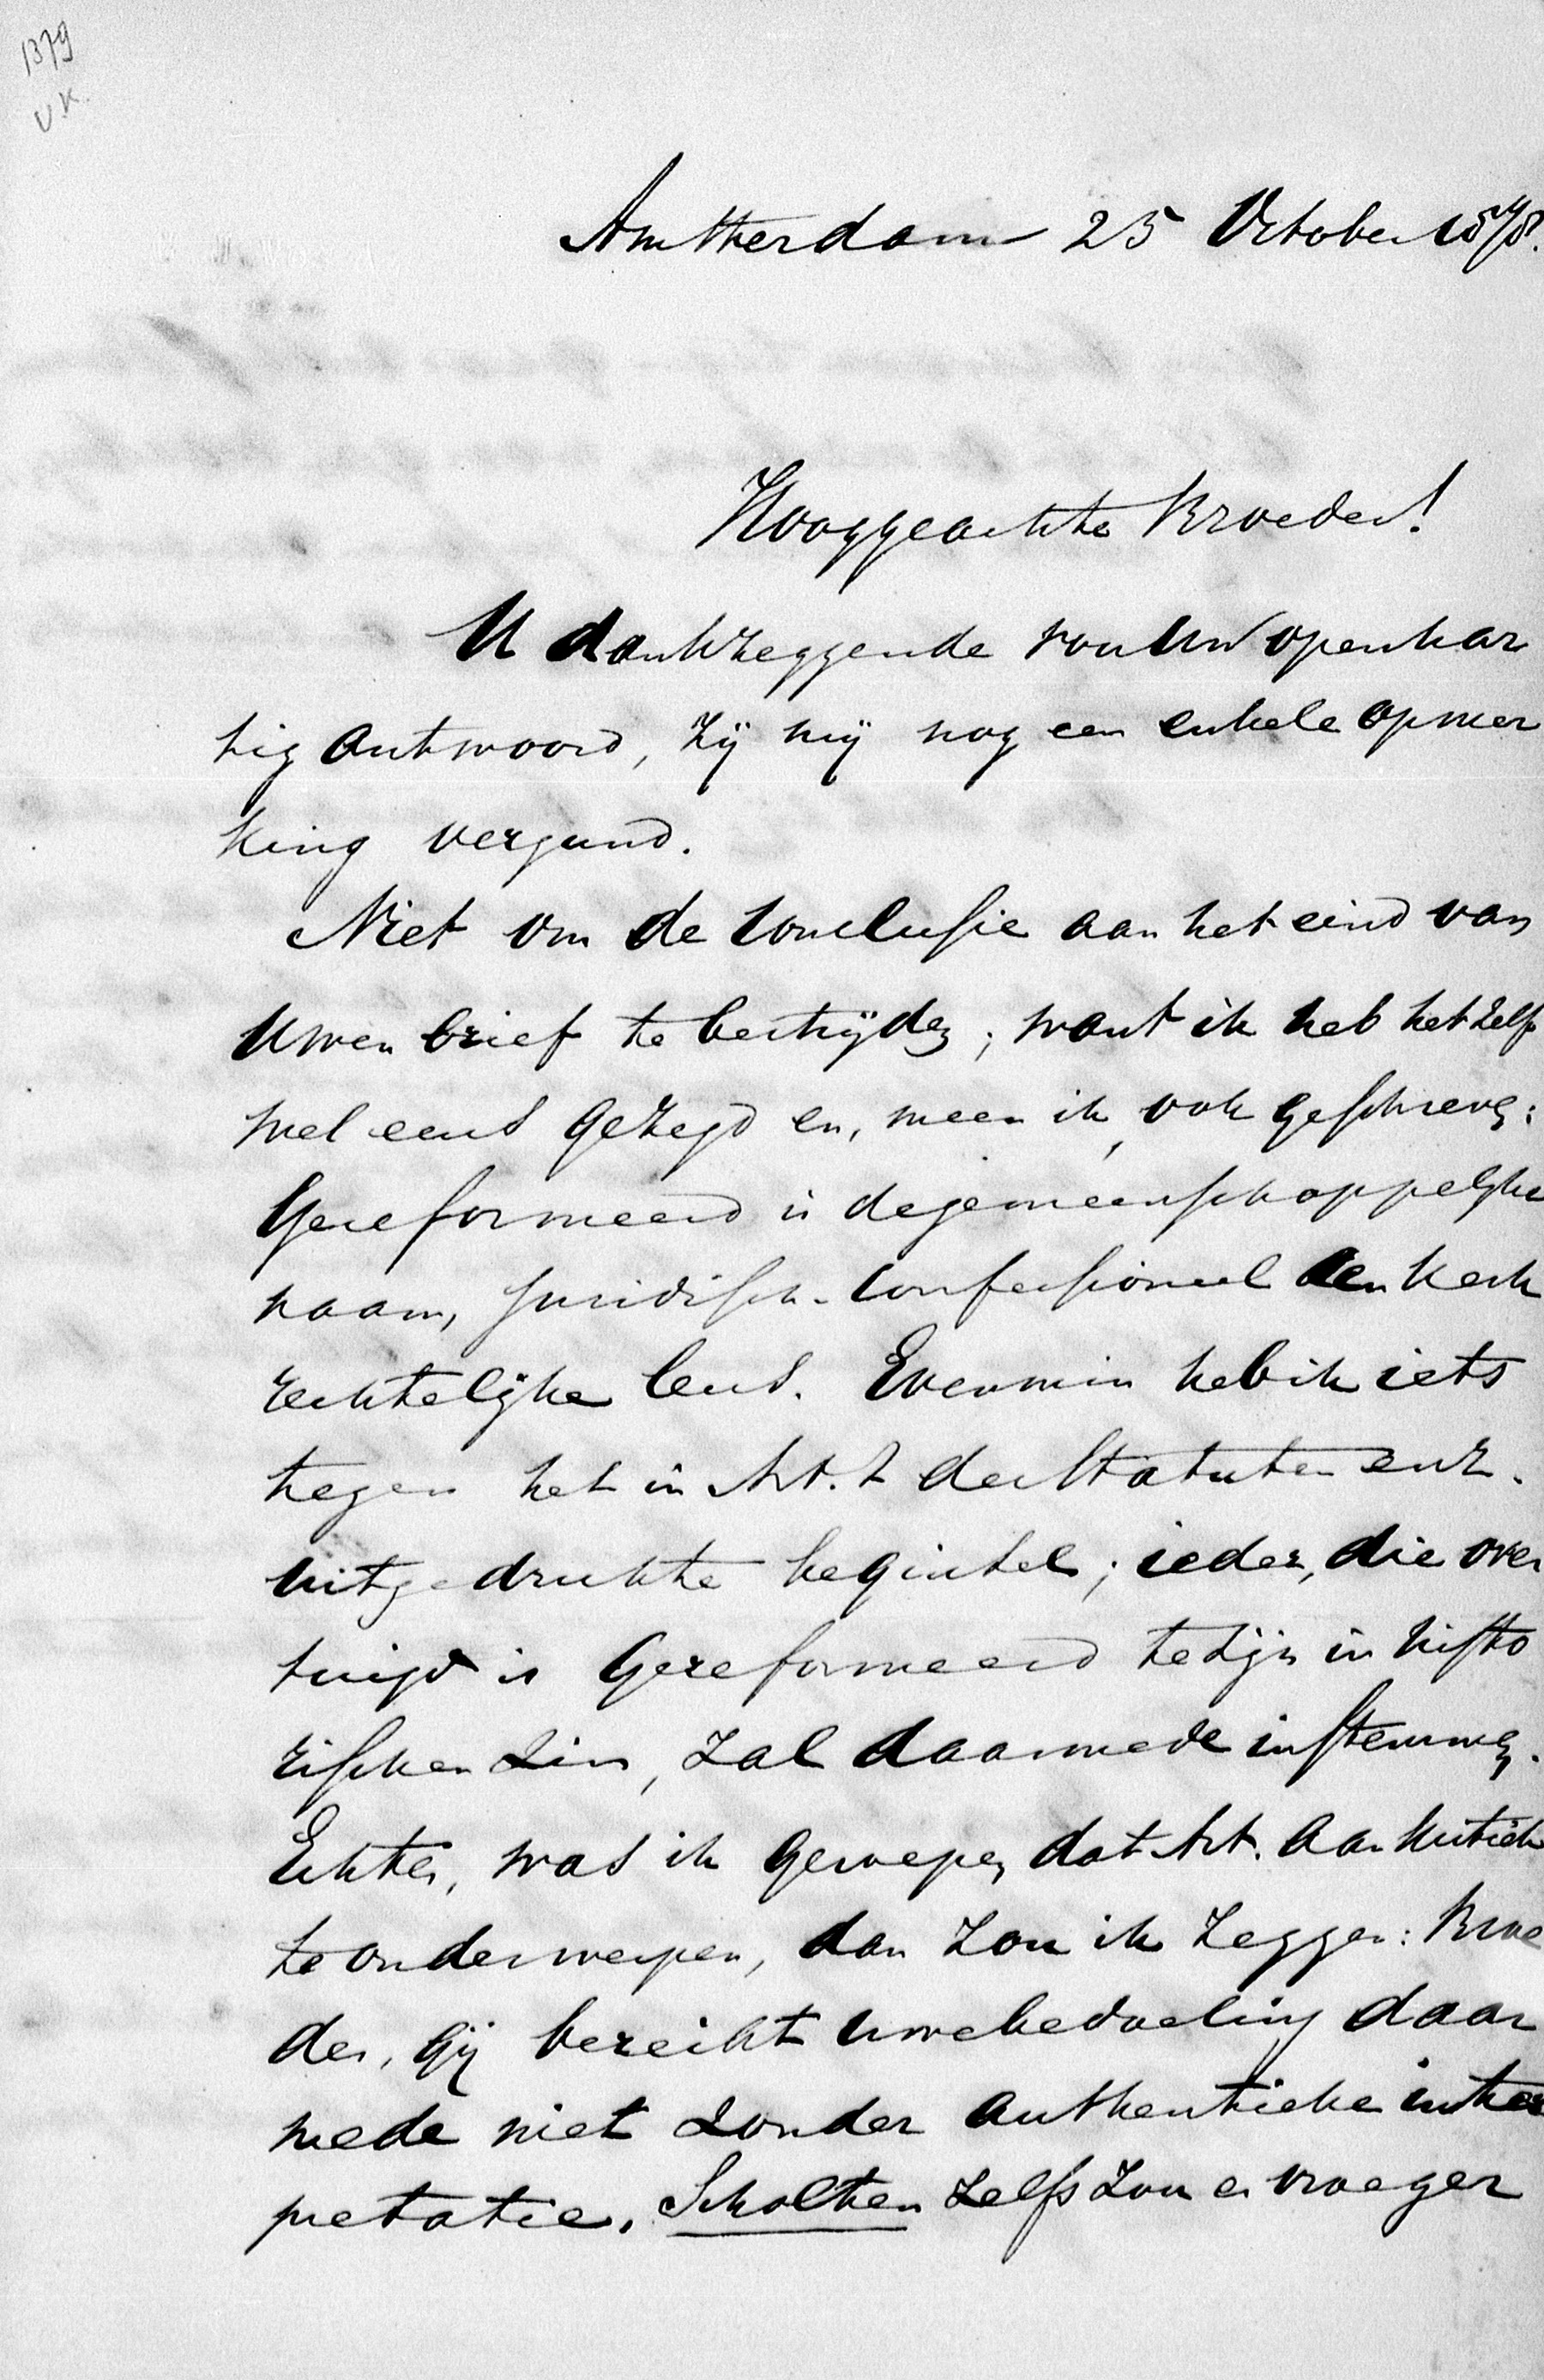 1379
V.K.
Amsterdam 25 October 1878.
Hooggeachte Broeder!
U dankzeggende voor Uw openhar
tig antwoord, zij mij nog een enkele opmer
king vergund.
Niet om de conclusie aan het eind van
Uwen brief te bestrijden; want ik heb het zelf
wel eens gezegd en, meen ik, ook geschreven:
Gereformeerd is de gemeenschappelijke
naam, Juridisch-Confessioneel de kerk
rechtelijke leus. Evenmin heb ik iets
tegen het in Art. 2 der Statuten enz.
uitgedrukte beginsel; ieder, die over
tuigd is Gereformeerd te zijn in histo
rischen zin, zal daarmede instemmen.
Echter, was ik geroepen dat Art. aan kritiek
te onderwerpen, dan zou ik zeggen: Broe
der, gij bereikt Uwe bedoeling daar
mede niet zonder authentieke inter
pretatie. Scholten zelfs zou er vroeger